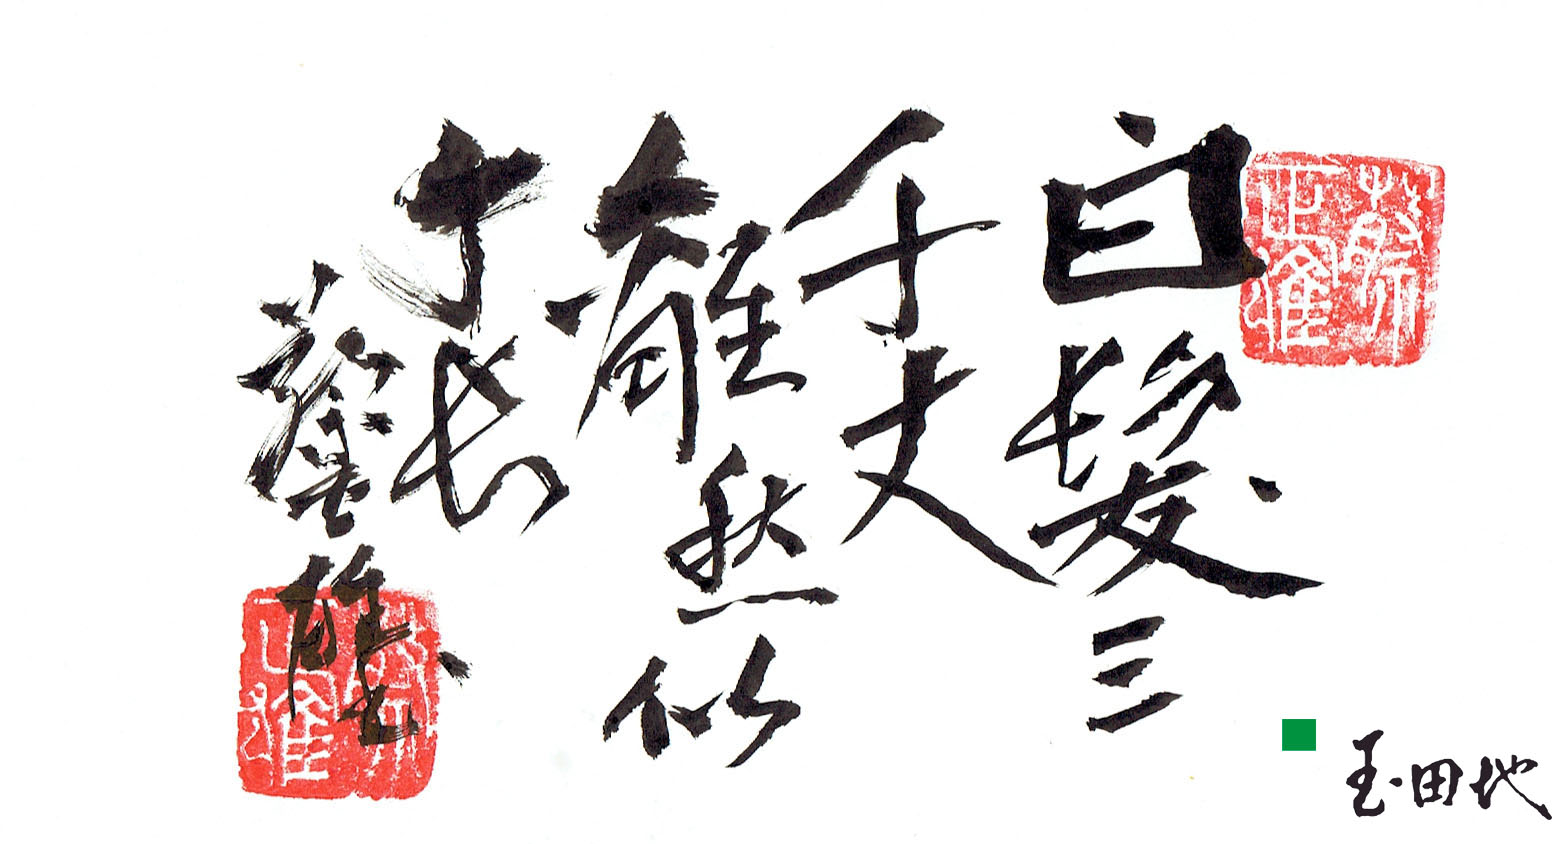 白髮三
千丈
離愁似
个長
玉田地